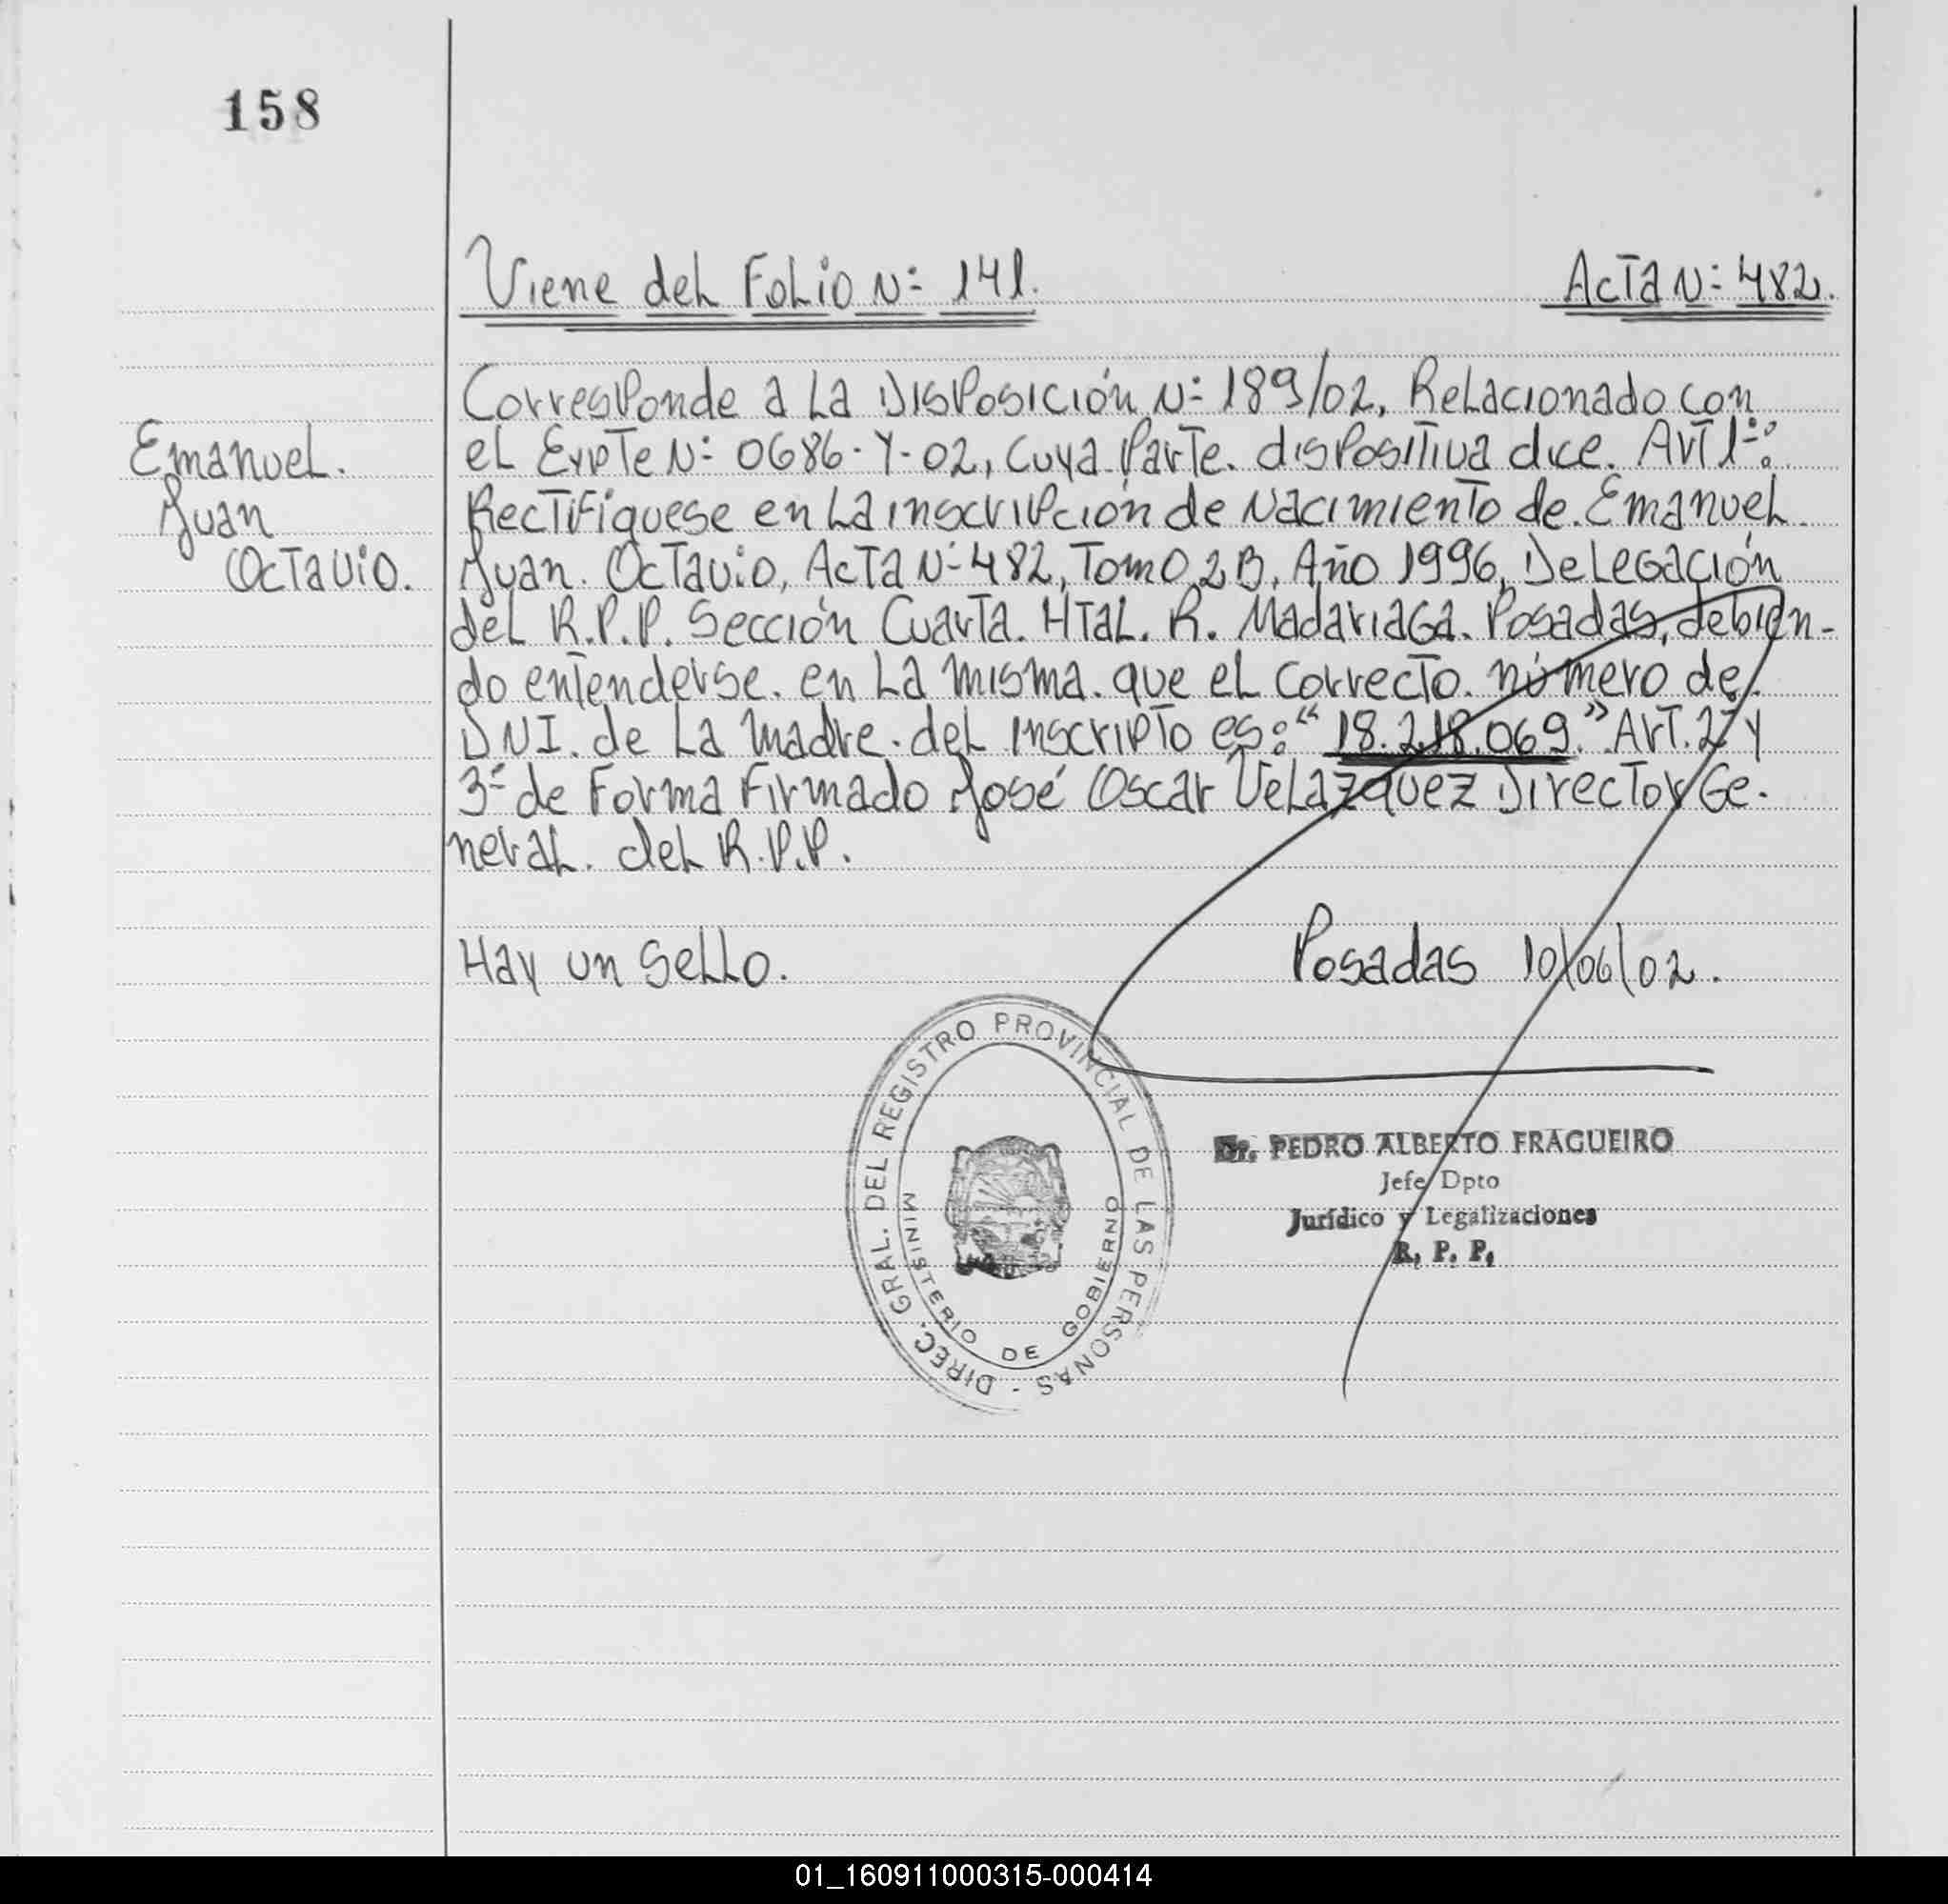 158
Viene del Folio N: 141.
Acta N: 482.
Emanuel.
Juan
Octavio.
Corresponde a La Disposición N: 189/02, Relacionado con
el Expte N: 0686-Y-02, Cuya Parte. dispositiva dice. Art 1º:
Rectifiquese en La inscripción de Nacimiento de. Emanuel
Juan. Octavio, Acta N: 482, Tomo 2B, Año 1996, Delegación
del R.P.P. Sección Cuarta. Htal. R. Madariaga. Posadas, debien-
do entenderse. en La misma. que el Correcto. número de.
DNI. de La madre. del inscripto es: "18.218.069." Art. 2º y
3º de Forma Firmado José Oscar Velazquez Director Ge-
neral. del R.P.P.
Hay un Sello.
Posadas 10/06/02.
DIREC. GRAL. DEL REGISTRO PROVINCIAL DE LAS PERSONAS -
MINISTERIO DE GOBIERNO
Dr. PEDRO ALBERTO FRAGUEIRO
Jefe Dpto
Jurídico y Legalizaciones
R. P. P.
01_160911000315-000414